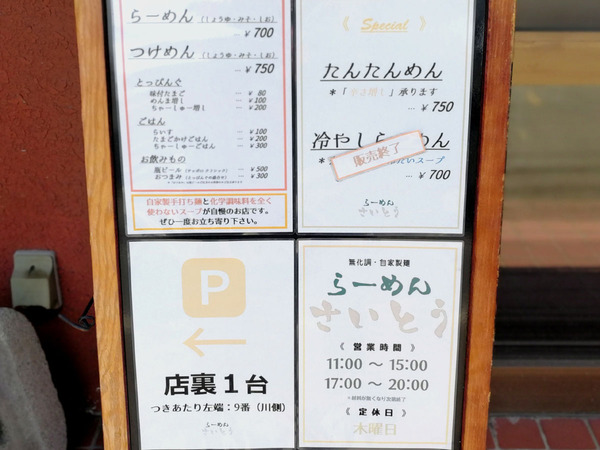 らーめん（しょうゆ・みそ・しお）
… ￥700
つけめん（しょうゆ・みそ・しお）
… ￥750
とっぴんぐ
味付たまご … ￥ 80
めんま増し … ￥100
ちゃーしゅー増し … ￥200
ごはん
らいす … ￥100
たまごかけごはん … ￥200
ちゃーしゅーごはん … ￥300
お飲みもの
瓶ビール … ￥500
おつまみ … ￥300
自家製手打ち麺と化学調味料を全く
使わないスープが自慢のお店です。
ぜひ一度お立ち寄り下さい。
《 Special 》
たんたんめん
＊「辛さ増し」承ります
… ￥750
冷やしらーめん
販売終了
スープ
… ￥700
らーめん
さいとう
P
←
店裏１台
つきあたり左端：9番（川側）
らーめん
さいとう
無化調・自家製麺
らーめん
さいとう
《 営業時間 》
11:00 ～ 15:00
17:00 ～ 20:00
《 定休日 》
木曜日